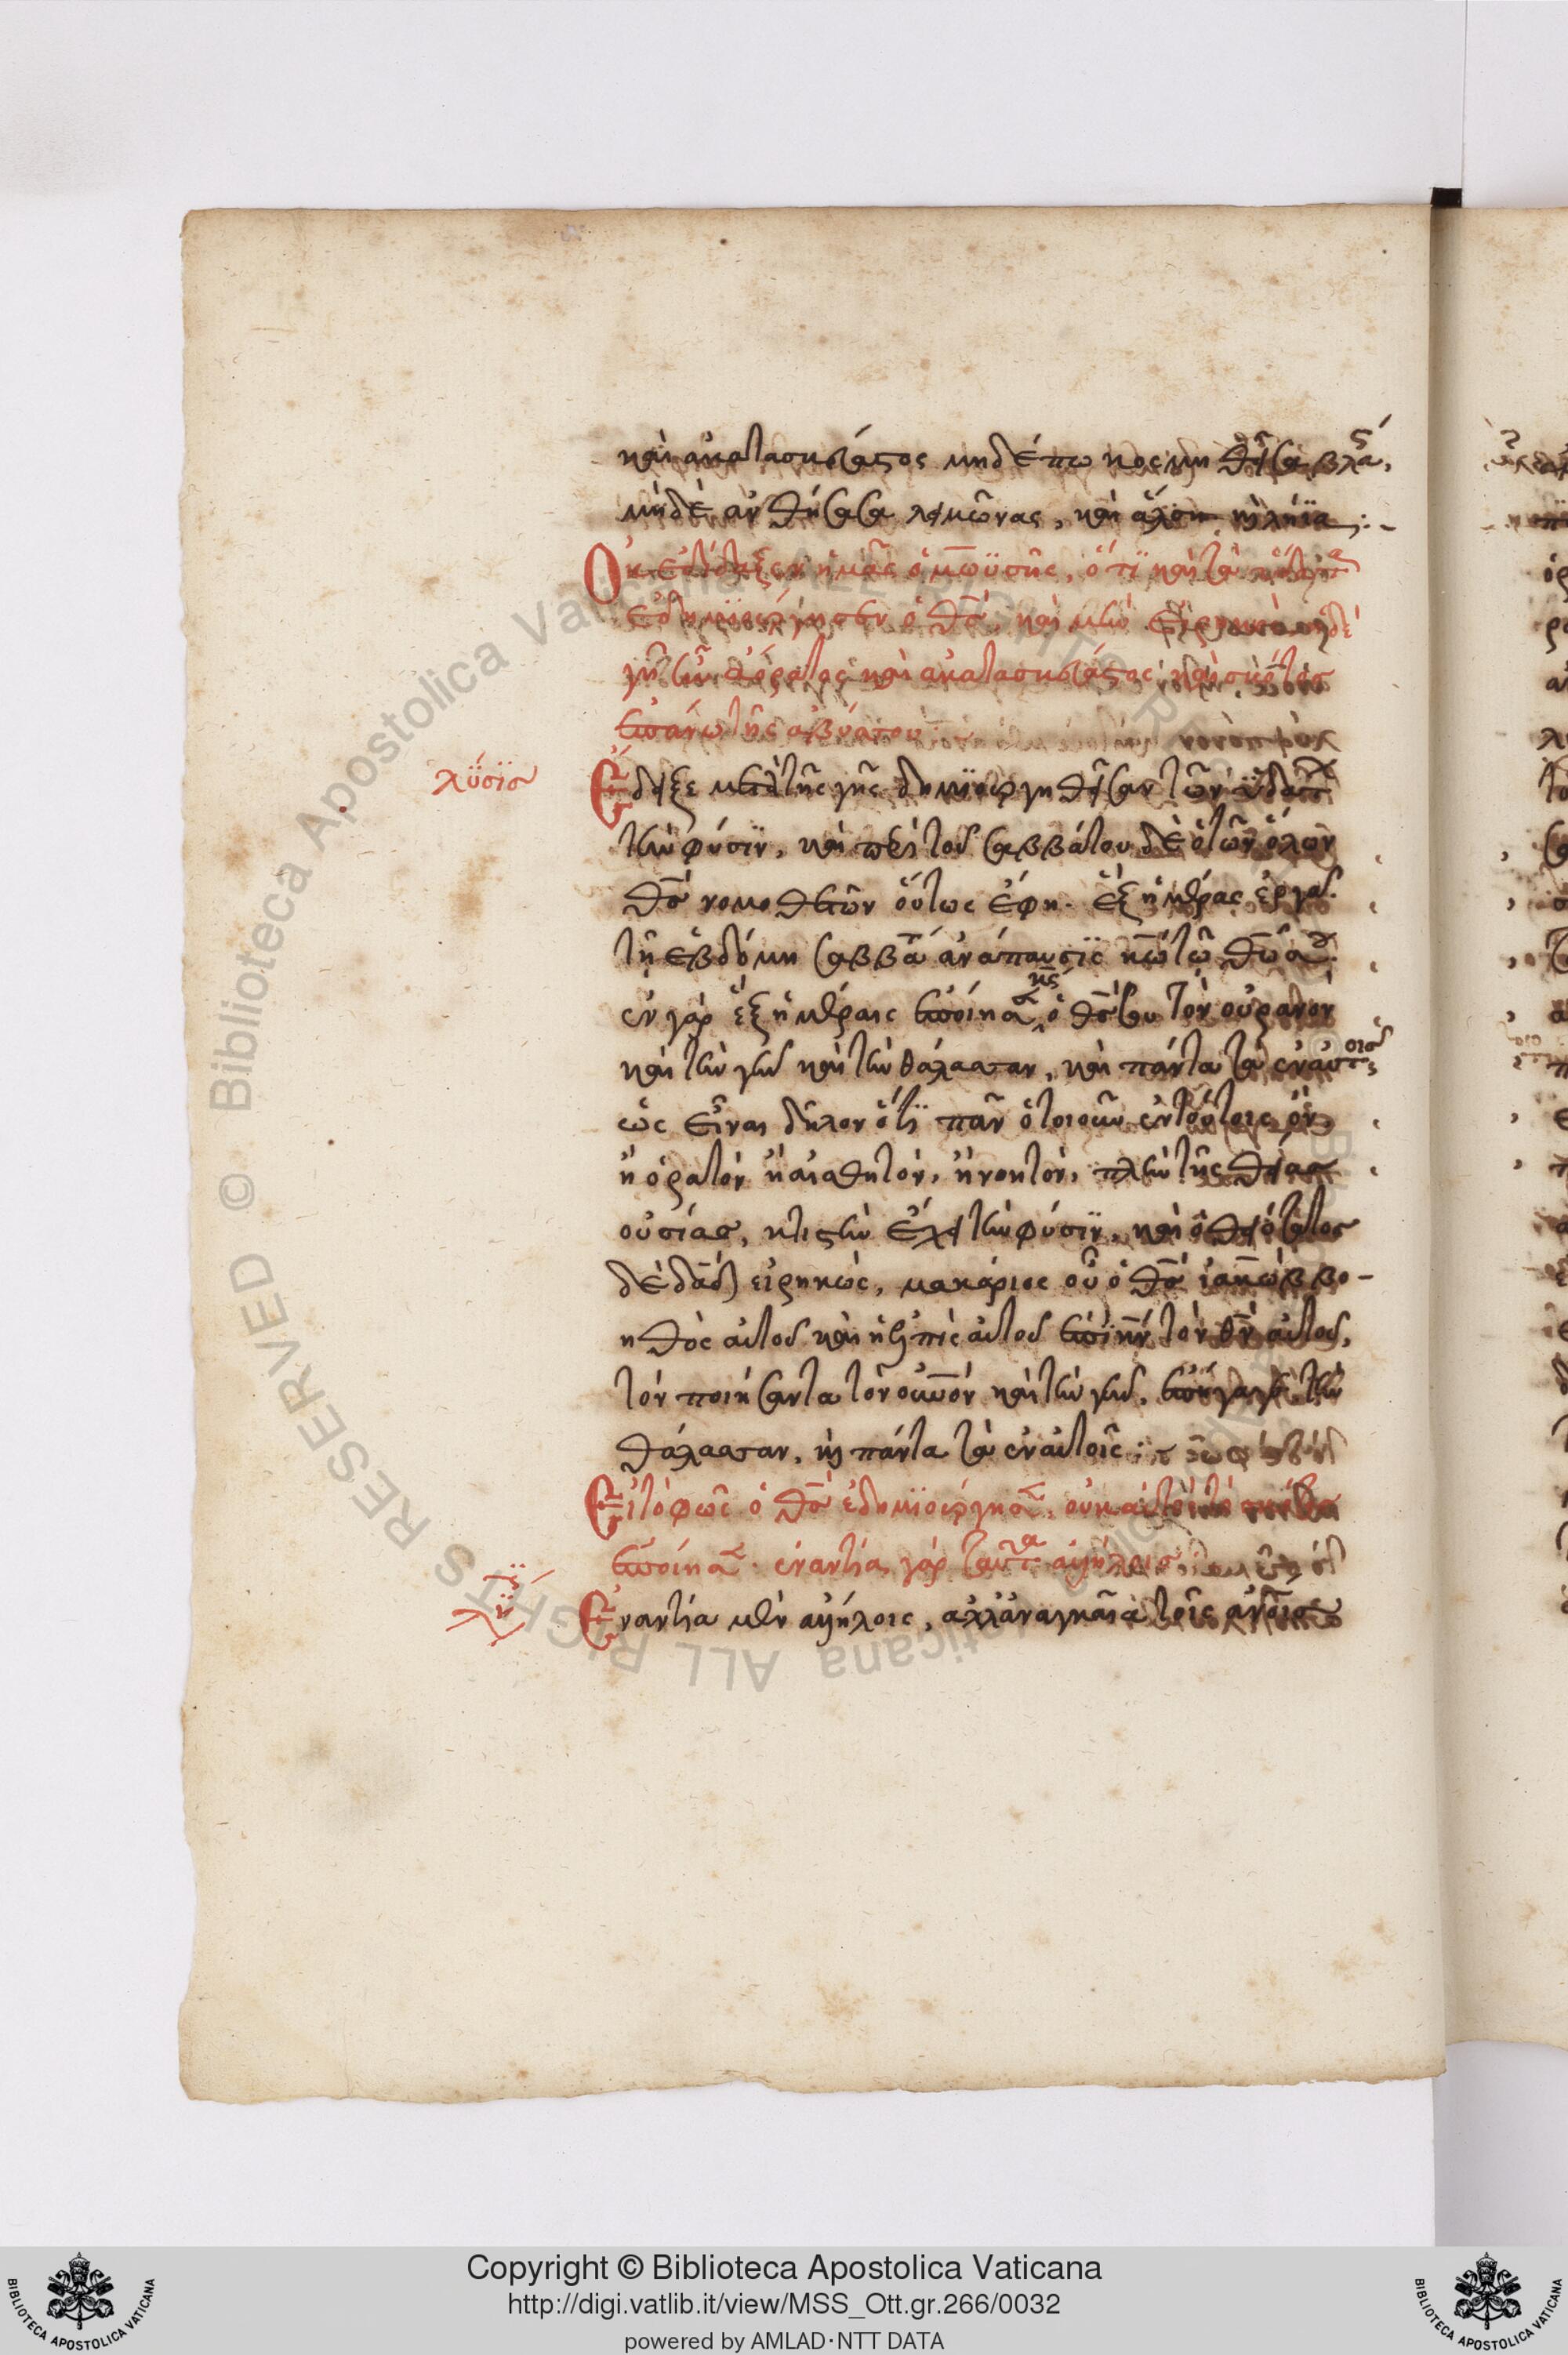 καὶ ἀκατασκεύαστος μηδέπω κοσμηθεῖσα βλάστ
μηδὲ ἀνθήσασα λειμῶνας, καὶ ἄλση καὶ λήϊα :-
Οὐκ ἐδίδαξεν ἡμᾶς ὁ μωϋσῆς, ὅτϊ καὶ τὰ ὕδατα
ἐδημϊούργησεν ὁ θσ, καὶ μὴν εἴρηκεν ἡ δὲ
γῆ ἦν ἀόρατος καὶ ἀκατασκεύαστος καὶ σκότος
ἐπάνω τῆς ἀβύσσου
λύσϊσ
Ἔδειξε μετὰ τῆς γῆς δημϊουργηθεῖσαν τῶν ὑδάτ
τὴν φύσϊν, καὶ περὶ τοῦ σαββάτου δὲ ὁ τῶν ὅλων
θσ νομοθετῶν οὕτως ἔφη. ἓξ ἡμέρας ἐργᾶ
τῇ ἑβδόμῃ σάββα ἀνάπαυσϊς κω τῶ θω σ
ἐν γὰρ ἓξ ἡμέραις ἐποίησε κς ὁ θσ σου τὸν οὐρανὸν
καὶ τὴν γῆν καὶ τὴν θάλασσαν, καὶ πάντα τὰ ἐν αὐτοῖσ
ὡς εἶναι δῆλον ὅτϊ πᾶν ὁτιοῦν ἐν τούτοις ὂν
ἢ ὁρατὸν ἢ αἰσθητὸν, ἢ νοητὸν, πλὴν τῆς θείασ
οὐσίασ, κτιστὴν ἔχει τὴν φύσϊν, καὶ ὁ θειότατος
δὲ δαδ εἰρηκώς, μακάριος οὗ ὁ θσ ἰακὼβ βο-
ηθὸς αὐτοῦ καὶ ἡ ἐλπὶς αὐτοῦ ἐπὶ κν τὸν θν αὐτοῦ,
τὸν ποιήσαντα τὸν οὐνον καὶ τὴν γῆν, ἐπήγαγε, τὴν
θάλασσαν, καὶ πάντα τὰ ἐν αὐτοῖς :
Εἰ τὸ φῶς ὁ θσ ἐδημϊούργησε, οὐκ αὐτὸς τὸ σκότος
ἐποίησε. ἐναντία γὰρ ταῦτα ἀλλήλοισ
λύσϊς
Ἐναντία μὲν ἀλλήλοις, ἀλλ' ἀναγκαῖα τοῖς ἀνοισ
Copyright © Biblioteca Apostolica Vaticana
http://digi.vatlib.it/view/MSS_Ott.gr.266/0032
powered by AMLAD·NTT DATA
BIBLIOTECA APOSTOLICA VATICANA
BIBLIOTECA APOSTOLICA VATICANA
© Biblioteca Apostolica Vaticana ALL RIGHTS RESERVED